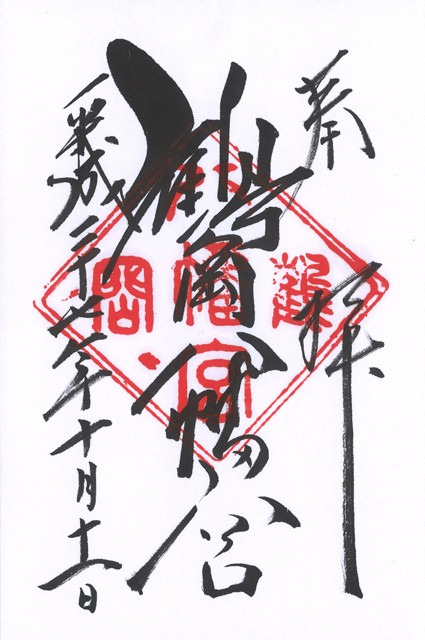 奉拝
鶴岡八幡宮
平成二十七年十月十一日
鶴
八幡宮
岡